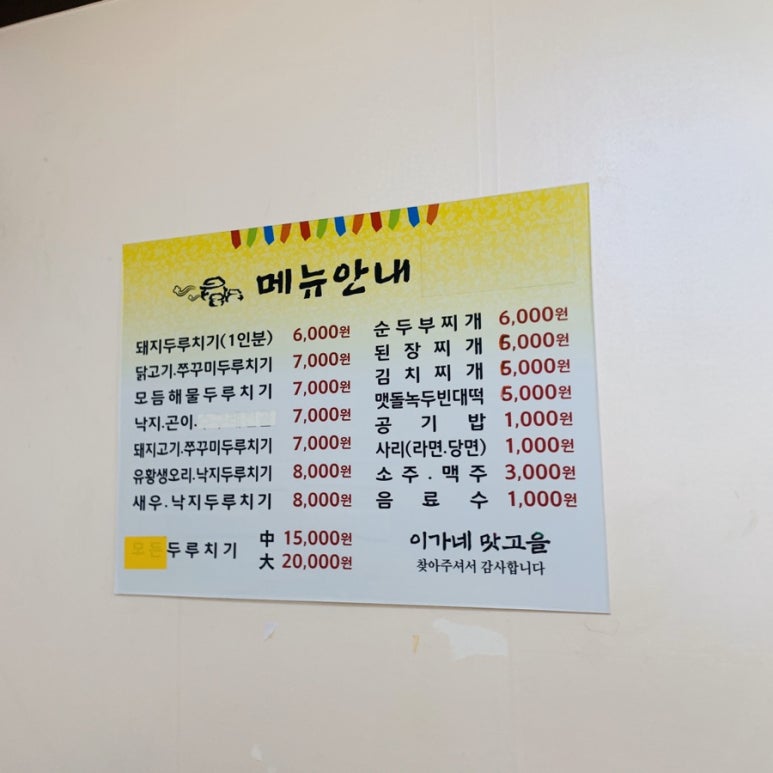 메뉴안내
돼지두루치기(1인분) 6,000원
닭고기.쭈꾸미두루치기 7,000원
모듬해물두루치기 7,000원
낙지.곤이. 7,000원
돼지고기.쭈꾸미두루치기 7,000원
유황생오리.낙지두루치기 8,000원
새우.낙지두루치기 8,000원
모든두루치기 中 15,000원
大 20,000원
순두부찌개 6,000원
된장찌개 6,000원
김치찌개 6,000원
맷돌녹두빈대떡 5,000원
공기밥 1,000원
사리(라면.당면) 1,000원
소주.맥주 3,000원
음료수 1,000원
이가네 맛고을
찾아주셔서 감사합니다